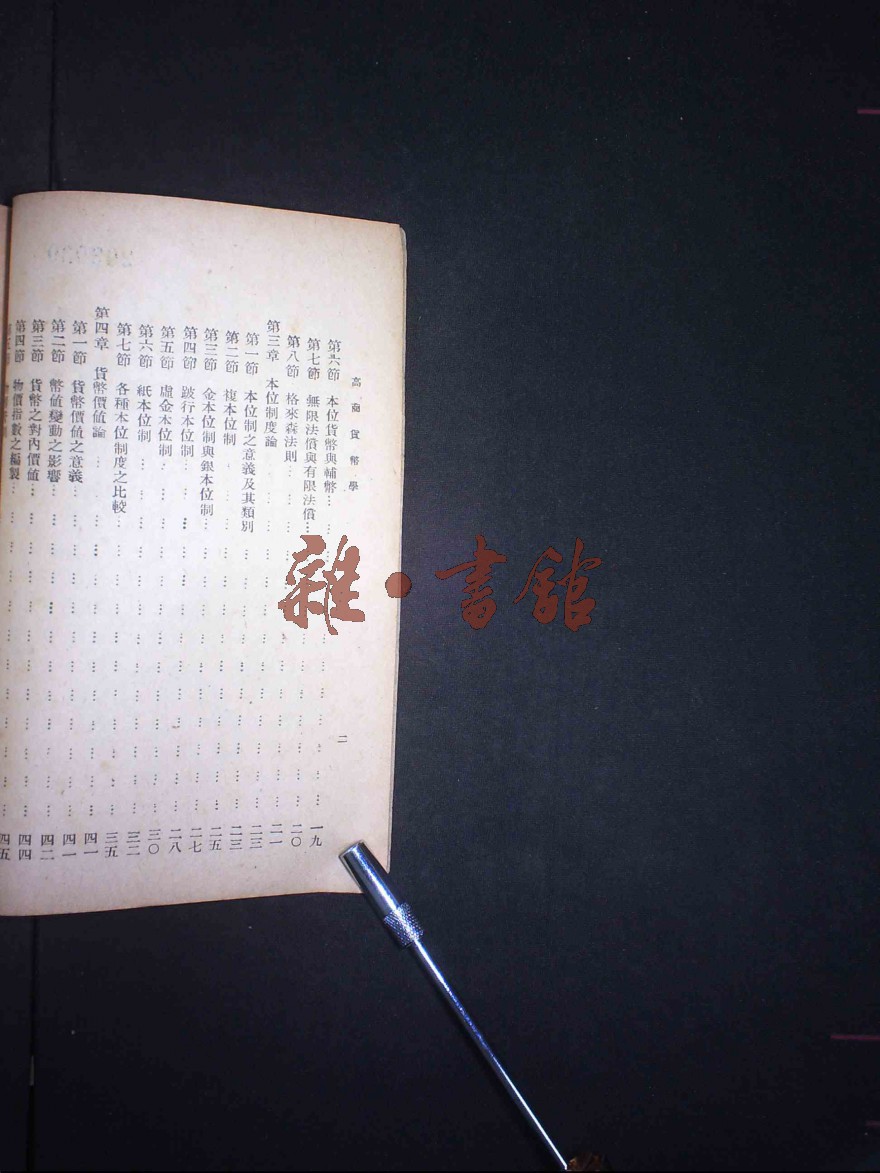 高商貨幣學
二
第六節 本位貨幣與輔幣……一九
第七節 無限法償與有限法償……二〇
第八節 格來森法則……二一
第三章 本位制度論……二三
第一節 本位制之意義及其類別……二三
第二節 複本位制……二五
第三節 金本位制與銀本位制……二七
第四節 跛行本位制……二八
第五節 虛金本位制……三〇
第六節 紙本位制……三二
第七節 各種本位制度之比較……三五
第四章 貨幣價值論……四一
第一節 貨幣價值之意義……四一
第二節 幣値變動之影響……四二
第三節 貨幣之對內價値……四四
第四節 物價指數之編製……四五
雜·書館